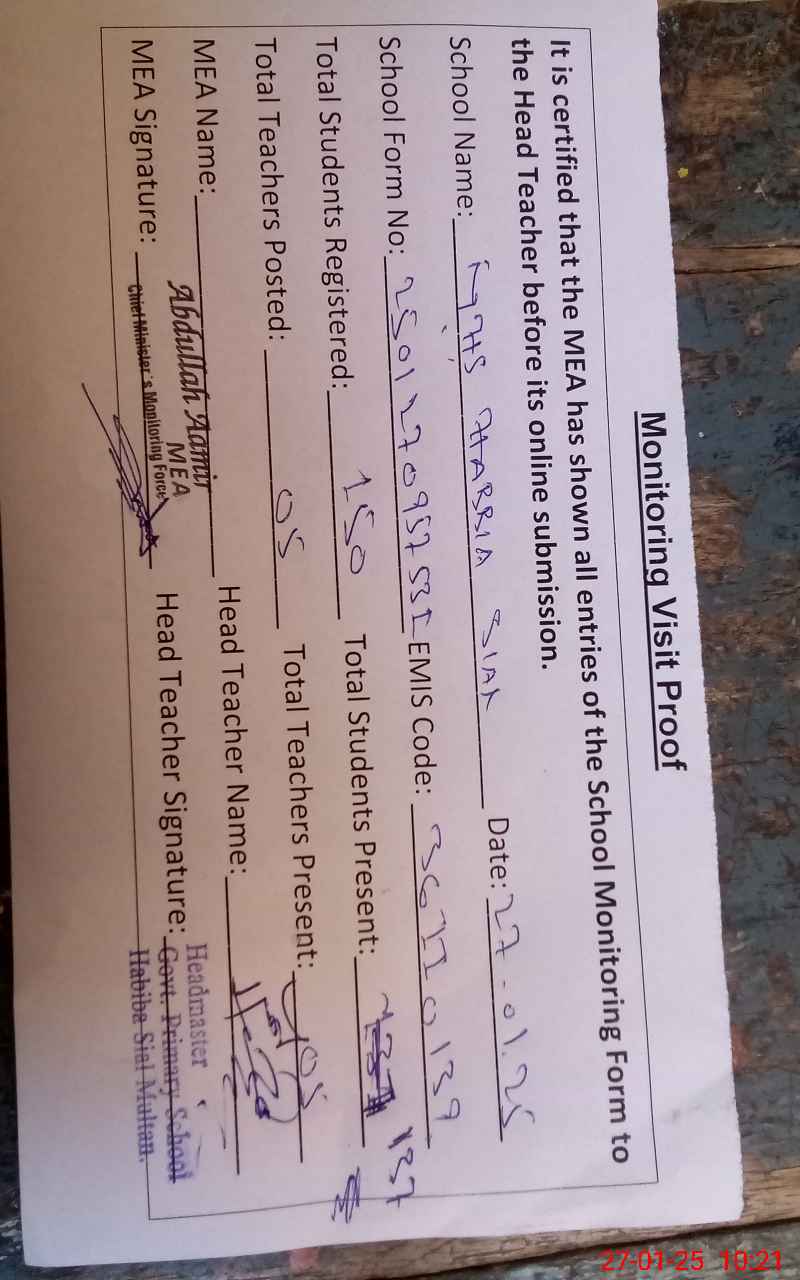 Monitoring Visit Proof
It is certified that the MEA has shown all entries of the School Monitoring Form to
the Head Teacher before its online submission.
School Name: Date: 27-01.25
School Form No: EMIS Code:
Total Students Registered: 150 Total Students Present: 137
Total Teachers Posted: 05 Total Teachers Present: 05
MEA Name: Abdullah Aamir Head Teacher Name:
MEA
MEA Signature: Chief Minister's Monitoring Force Head Teacher Signature:
Headmaster
Govt. Primary School
Habiba Sial Multan.
27-01-25 10:21